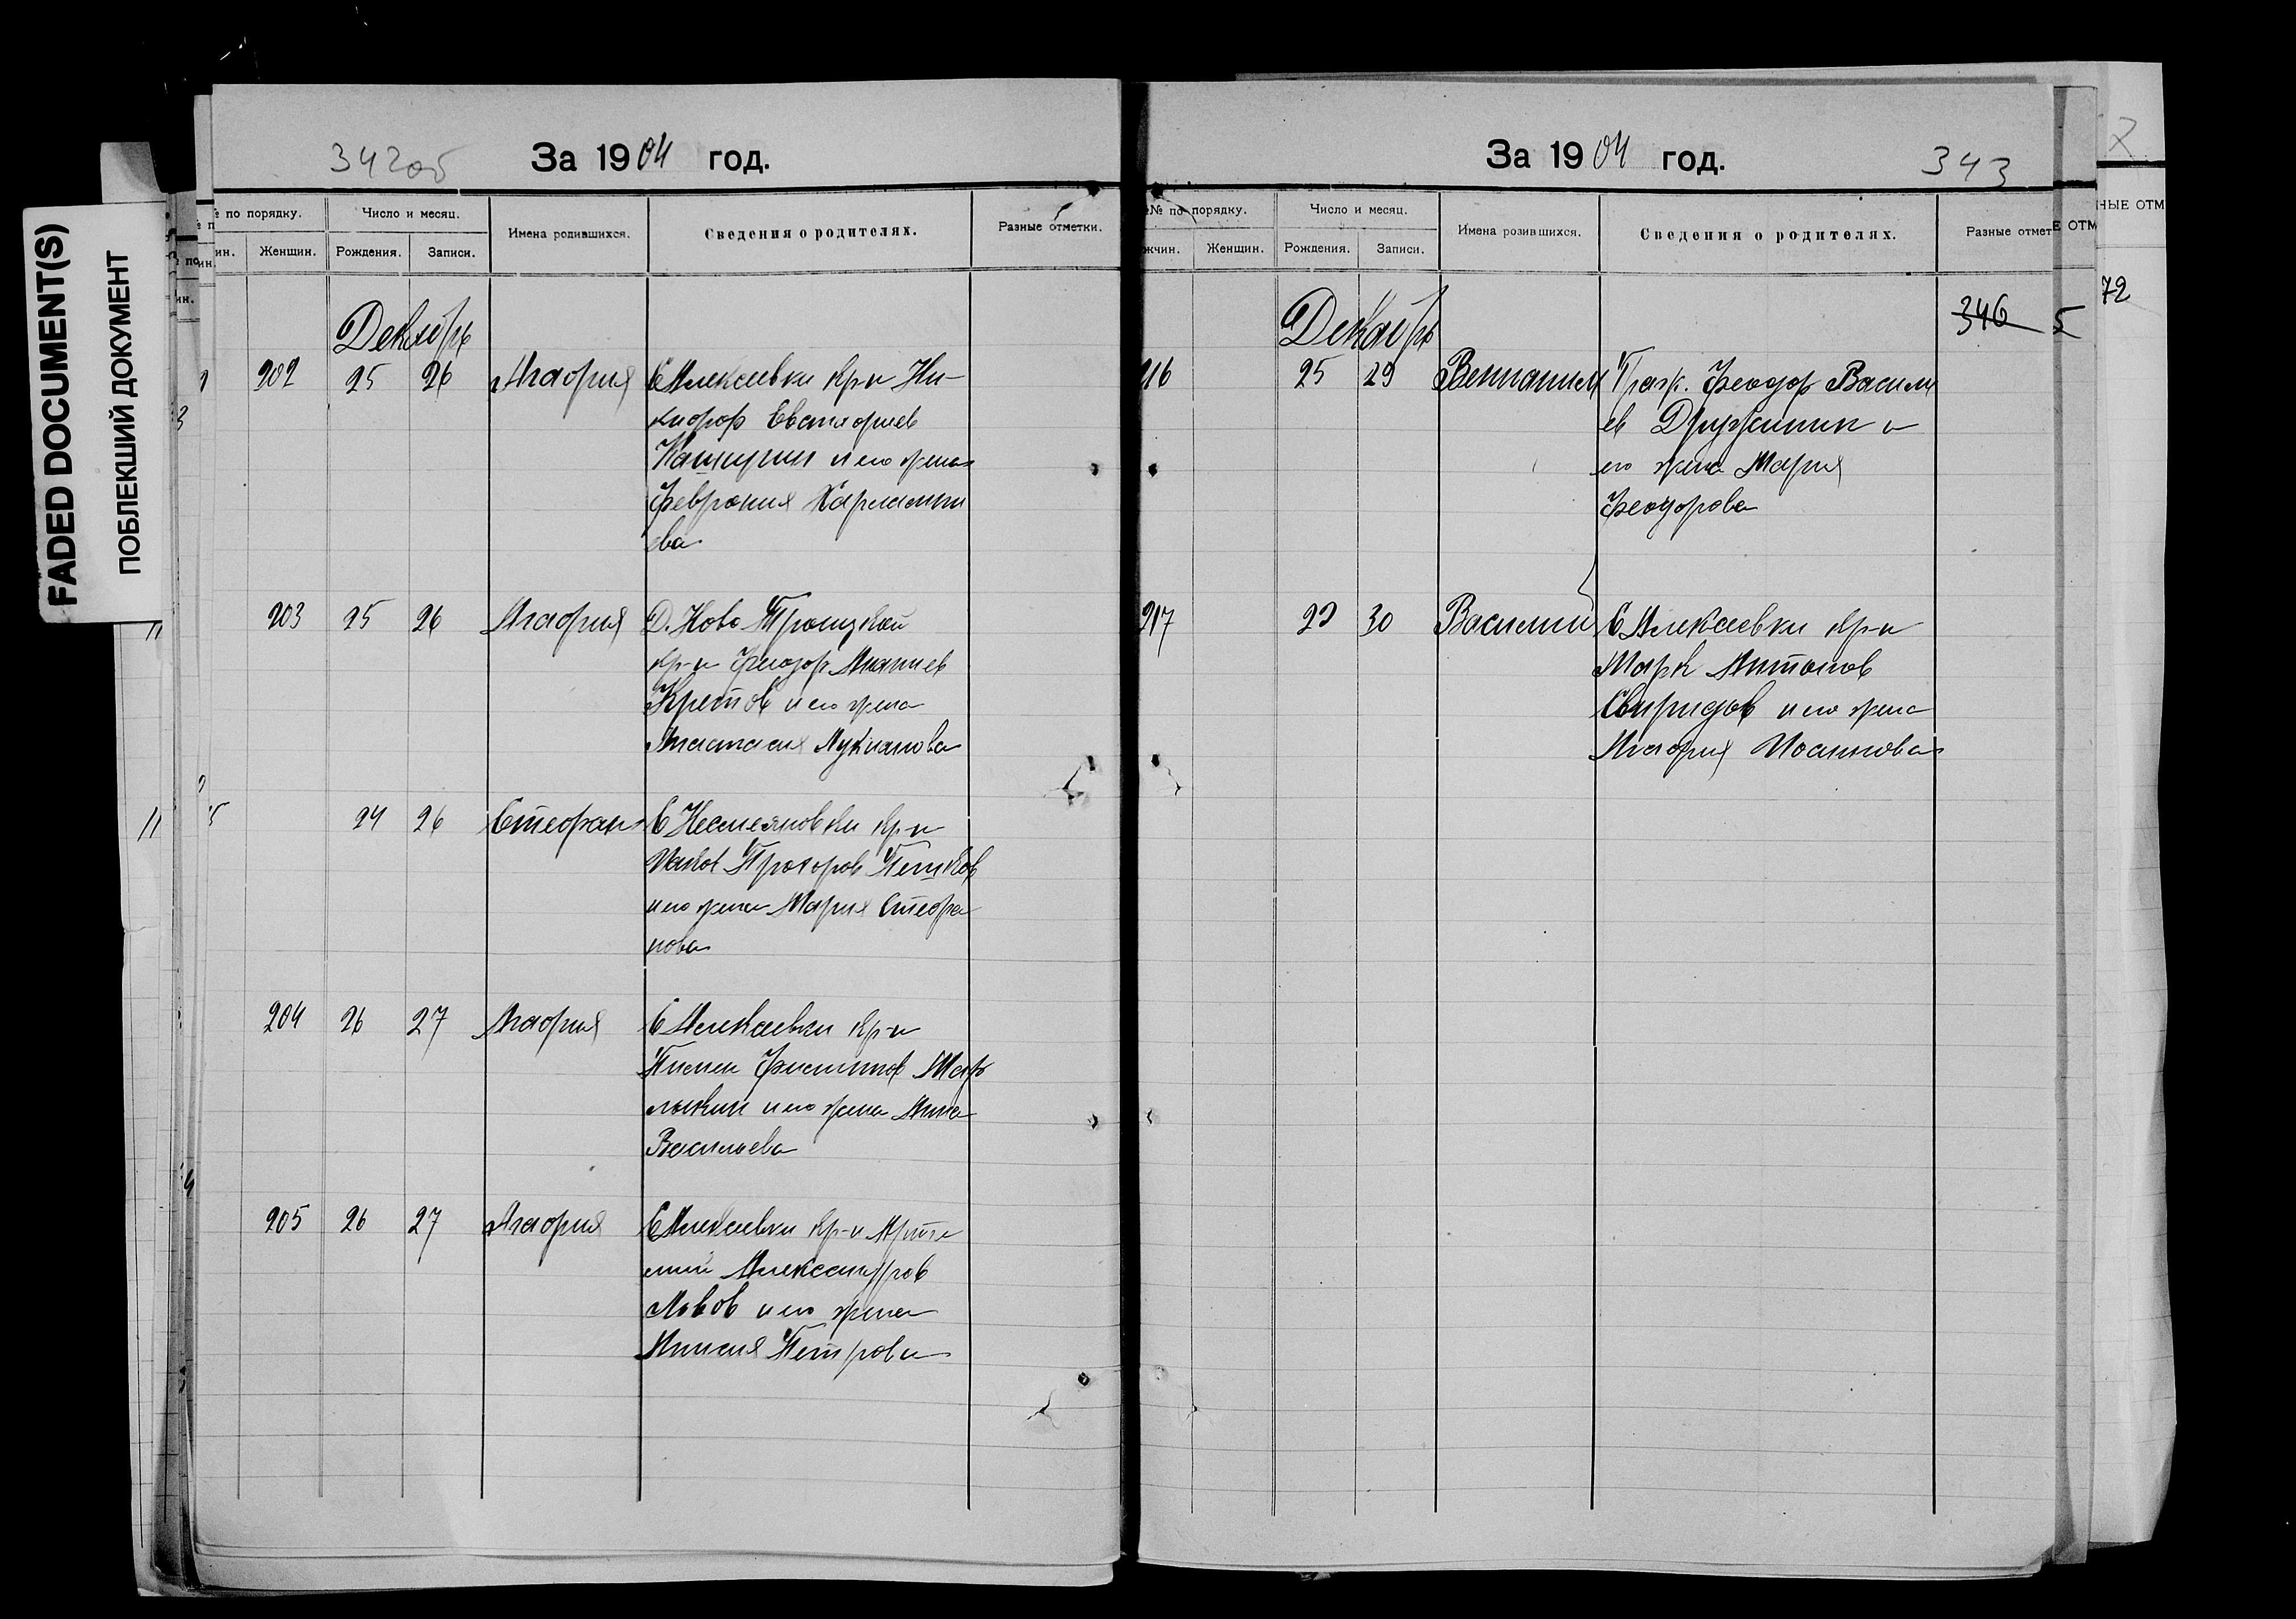 FADED DOCUMENT(S)
ПОБЛЕКШИЙ ДОКУМЕНТ
342об
За 1904 год.
№ по порядку.
Число и месяц.
Имена родившихся.
Сведения о родителях.
Разные отметки.
Женщин.
Рождения.
Записи.
Декабрь
202 25 26 Агафия С Алексеевки кр-н Ни-
кифор Евстафиев
Кашурин и его жена
Феврония Харлампи
ева
203 25 26 Агафия Д. Ново Троицкой
кр-н Феодор Ананиев
Кретов и его жена
Анастасия Лукианова
24 26 Стефан С Несмеяновки кр-н
Иаков Прохоров Пешков
и его жена Мария Стефа
нова
204 26 27 Агафия С Алексеевки кр-н
Пимен Филиппов
и его жена Анна
Васильева
205 26 27 Агафия С Алексеевки кр-н Арте
мий Александров
Львов и его жена
Анисия Петрова
За 1904 год.
343
№№ по порядку.
Число и месяц.
Имена розившихся.
Сведения о родителях.
Разные отмет
жчин.
Женщин.
Рождения.
Записи.
НЫЕ ОТМ
Е ОТМ
72
346 5
Декабрь
216 25 29 Вениамин Граж. Феодор Василь
ев Дружинин и
его жена Мария
Феодорова
217 22 30 Василий С Алексеевки кр-н
Марк Антонов
Свиридов и его жена
Агафия Иоаннова